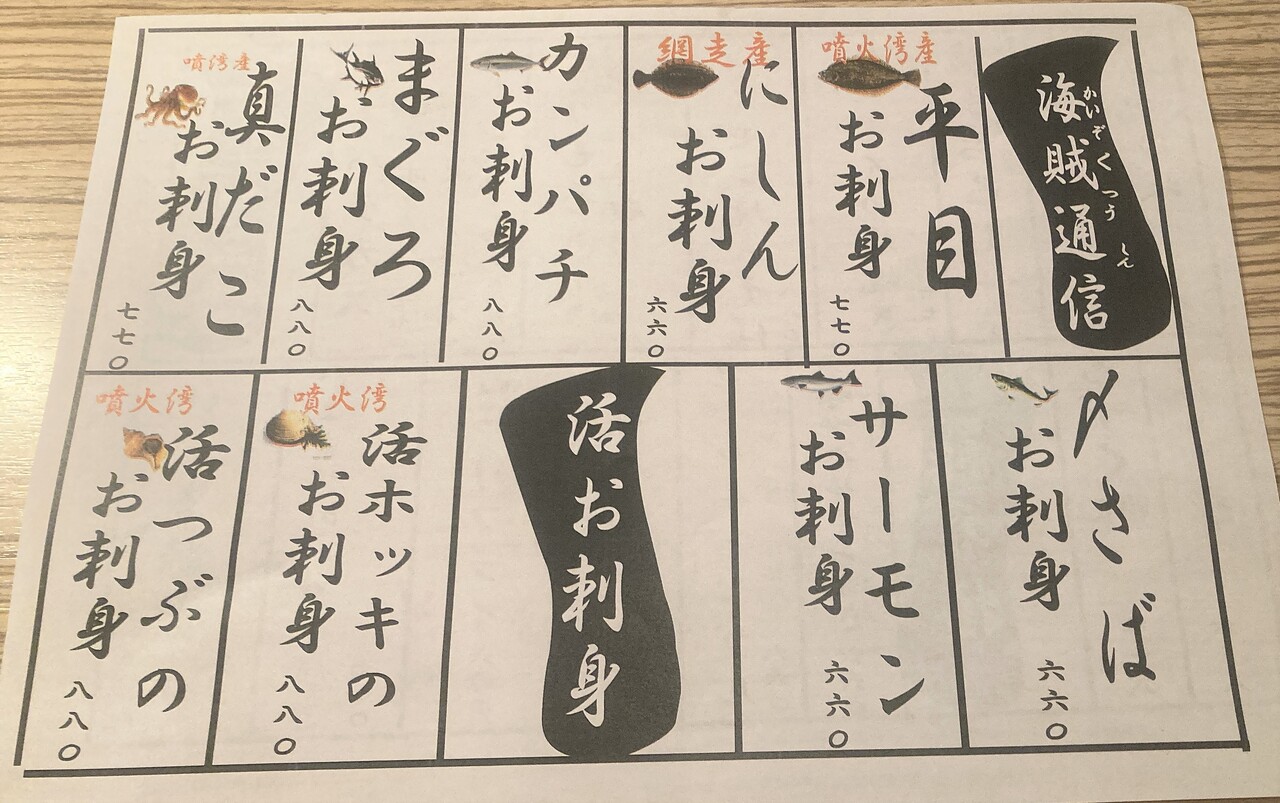 海賊通信
かいぞくつうしん
噴火湾産
平目
お刺身
七七〇
網走産
にしん
お刺身
六六〇
カンパチ
お刺身
八八〇
まぐろ
お刺身
八八〇
噴湾産
真だこ
お刺身
七七〇
〆さば
お刺身
六六〇
サーモン
お刺身
六六〇
活お刺身
噴火湾
活ホッキの
お刺身
八八〇
噴火湾
活つぶの
お刺身
八八〇